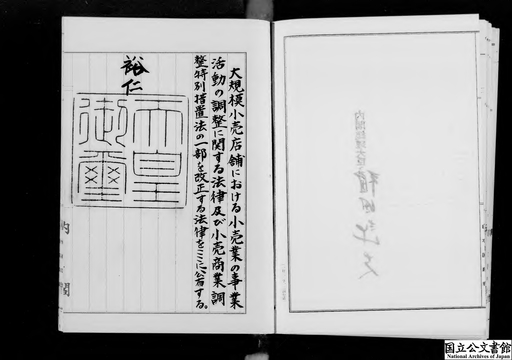 大規模小売店舗における小売業の事業
活動の調整に関する法律及び小売商業調
整特別措置法の一部を改正する法律をここに公布する。
裕仁
天皇
御璽
内閣
国立公文書館
National Archives of Japan